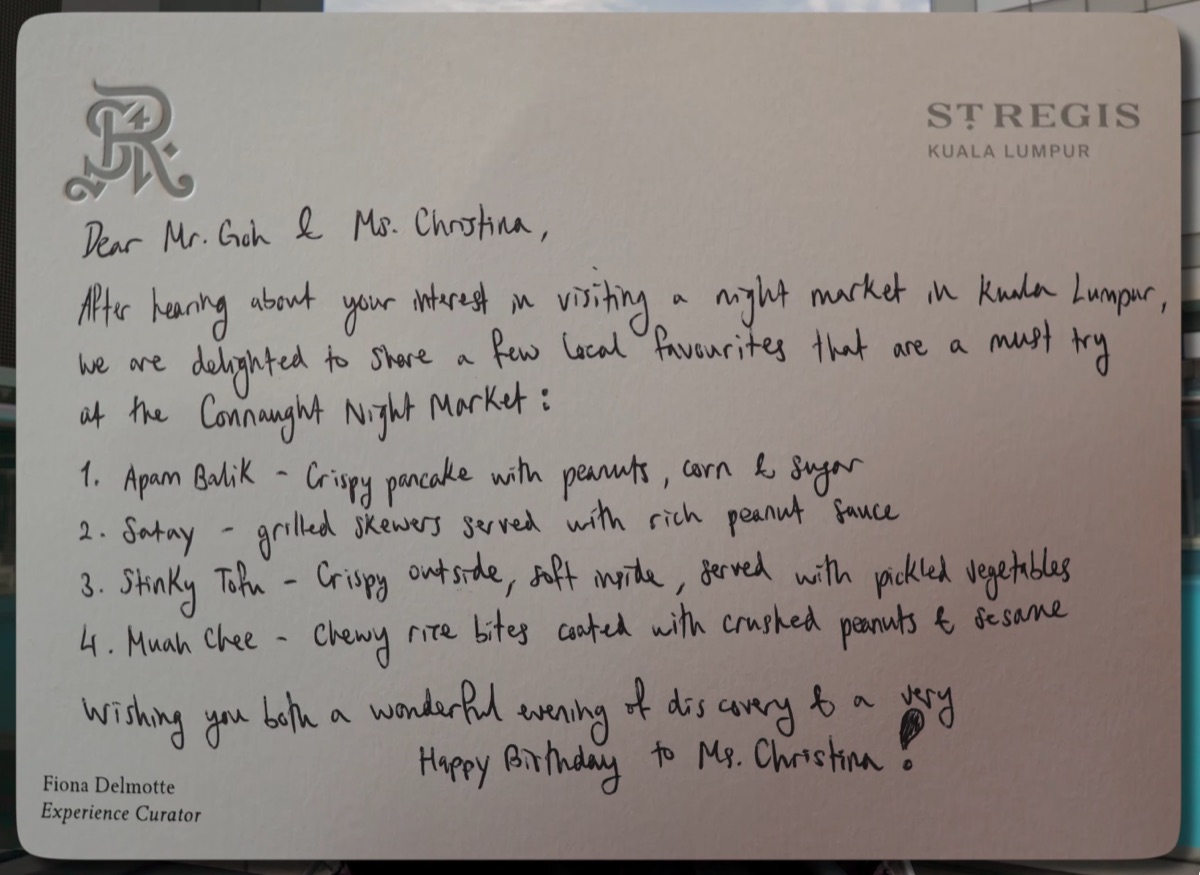 ST. REGIS
KUALA LUMPUR
Dear Mr. Goh & Ms. Christina,
After hearing about your interest in visiting a night market in Kuala Lumpur,
we are delighted to share a few local favourites that are a must try
at the Connaught Night Market:
1. Apam Balik - Crispy pancake with peanuts, corn & sugar
2. Satay - grilled skewers served with rich peanut sauce
3. Stinky Tofu - Crispy outside, soft inside, served with pickled vegetables
4. Muah Chee - Chewy rice bites coated with crushed peanuts & sesame
Wishing you both a wonderful evening of discovery & a very
Happy Birthday to Ms. Christina!
Fiona Delmotte
Experience Curator